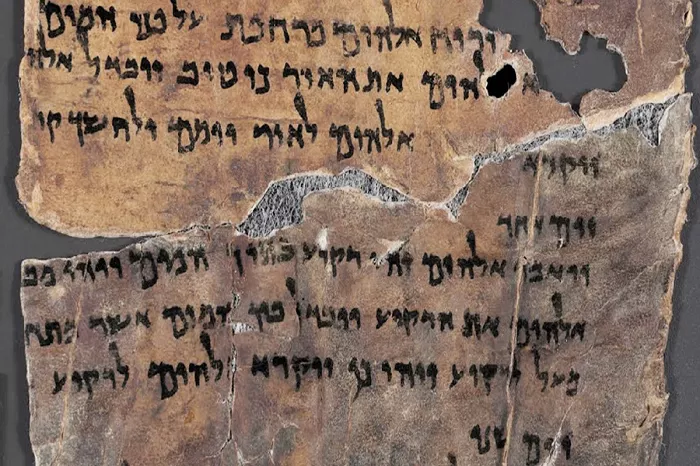 ורוח אלהים מרחפת על פני המים
א להים את האור כי טוב ויבדל אלה
אלהים לאור יומם ולחשך קר
ויקרא
יום אחד
ויאמר אלהים יהי רקיע בתוך המים ויהי מב
אלהים את הרקיע ויבדל בין המים אשר מתח
מעל לרקיע ויהי כן ויקרא אלהים לרקיע
יום שני